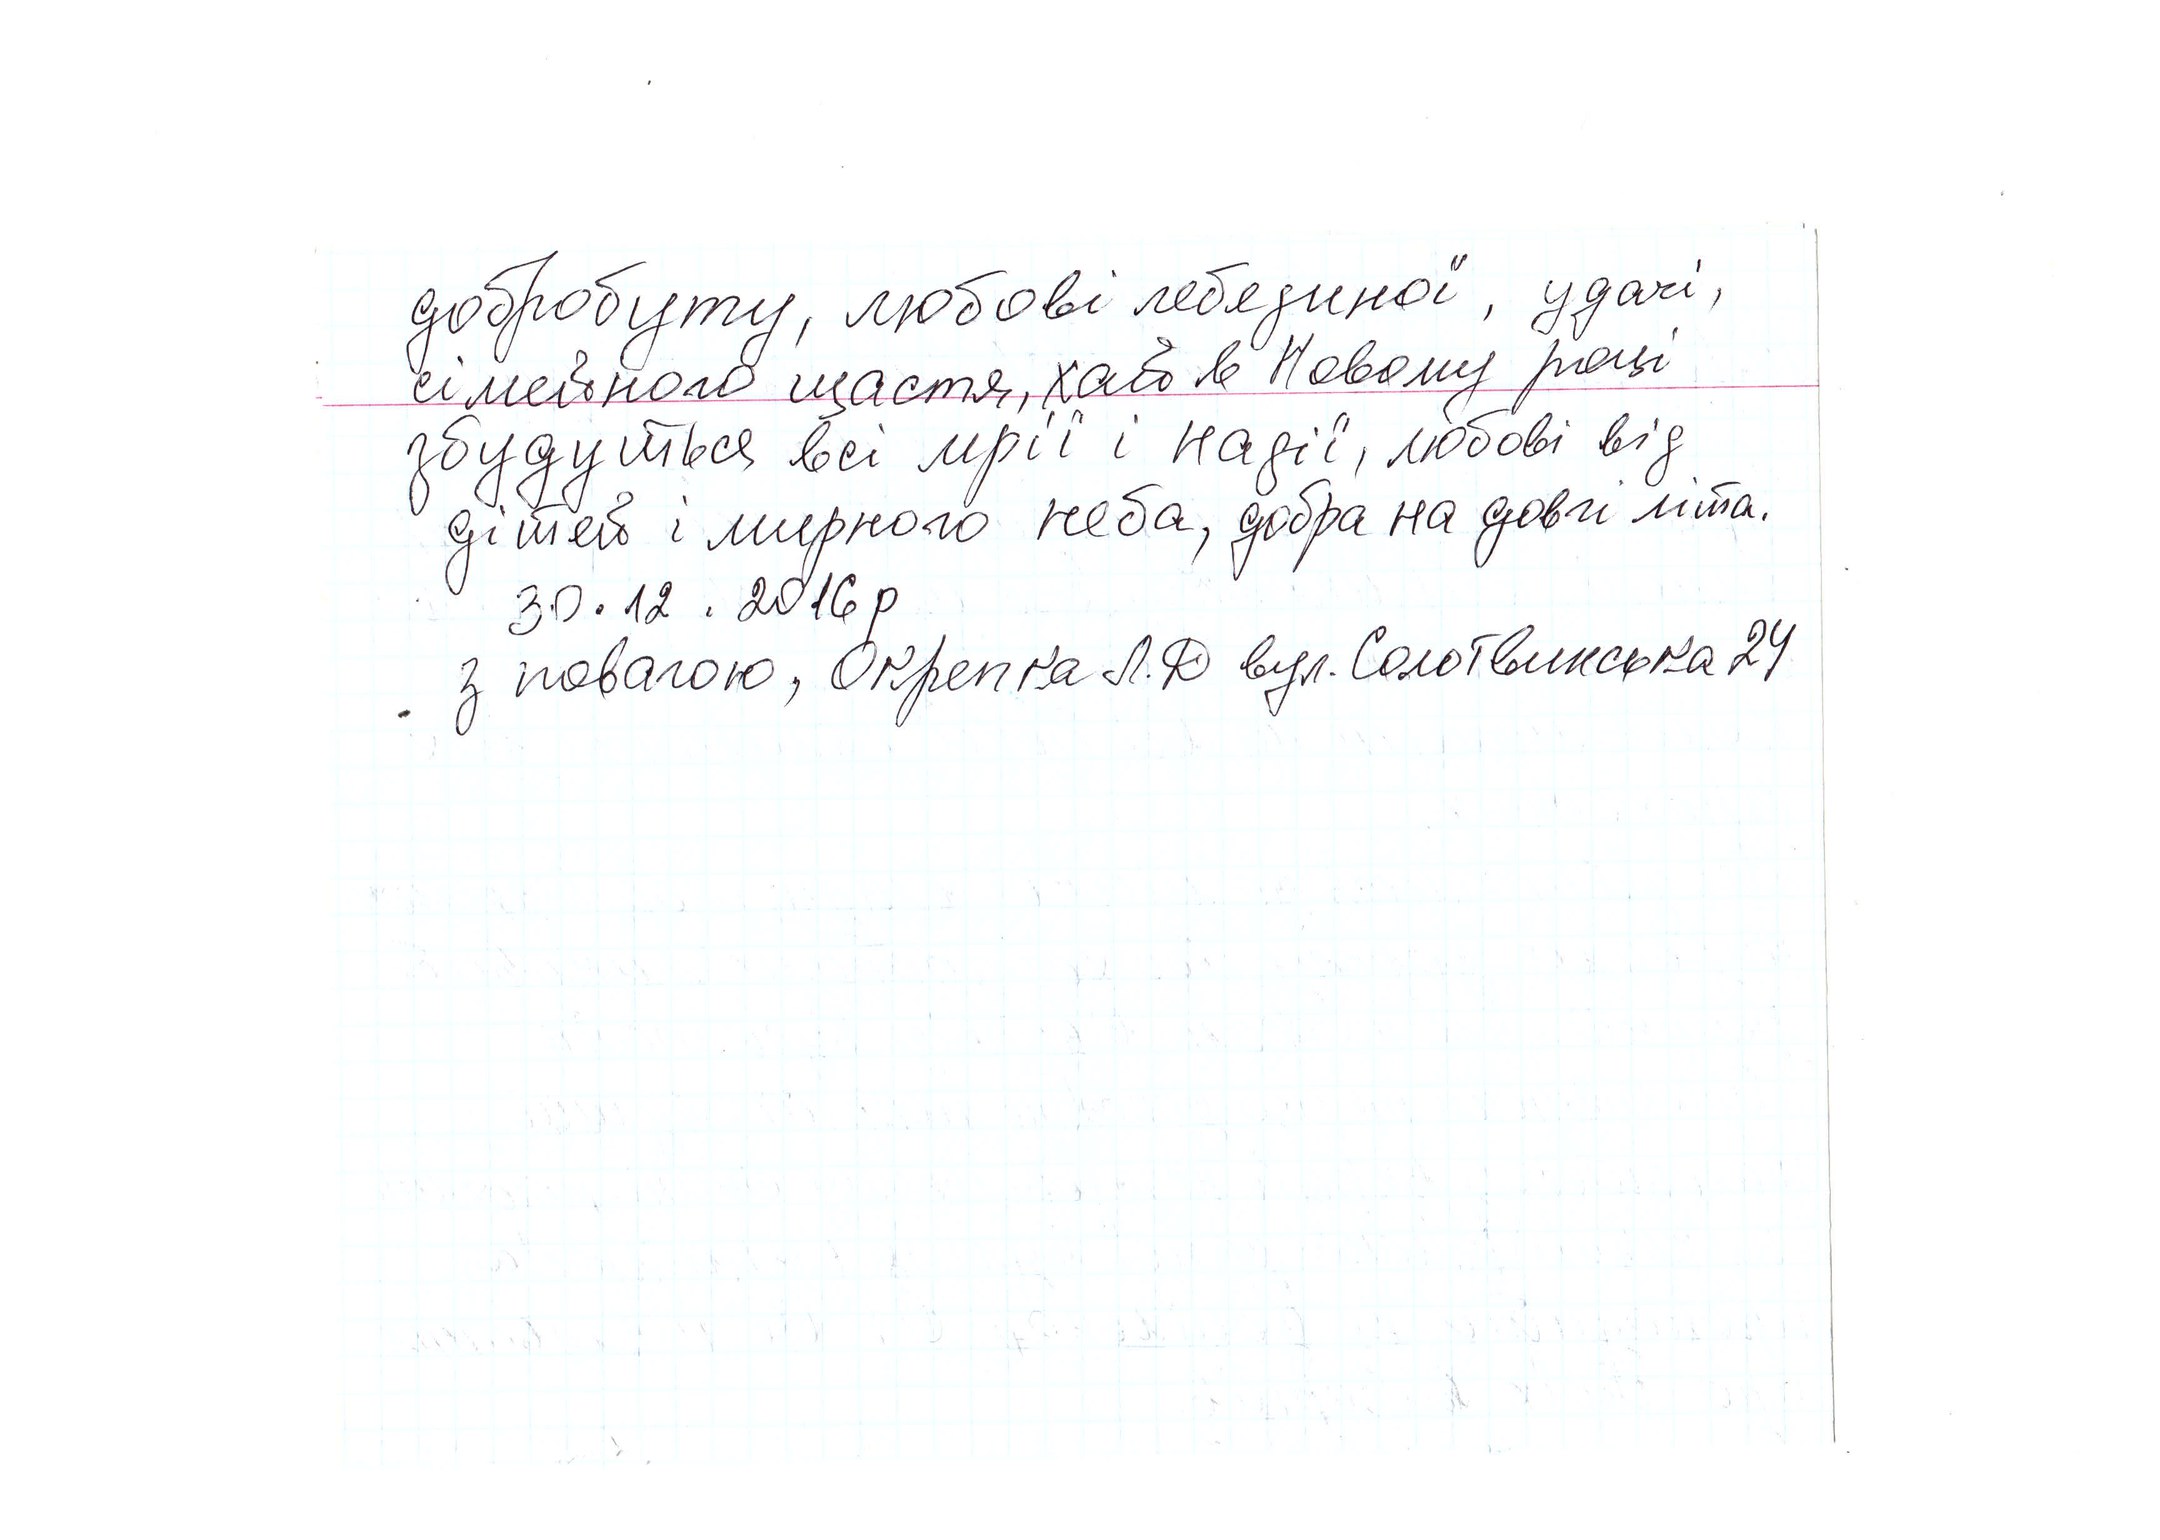 добробуту, любові лебединої, удачі,
сімейного щастя, хай в Новому році
збудуться всі мрії і надії, любові від
дітей і мирного неба, добра на довгі літа.
30.12.2016р
з повагою, Окрепка Л.Д вул. Солотвинська 24